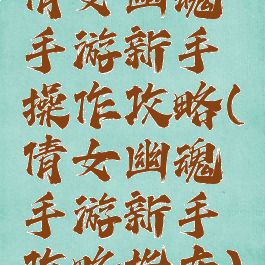 倩女幽魂
手游新手
操作攻略(
倩女幽魂
手游新手
攻略推荐)